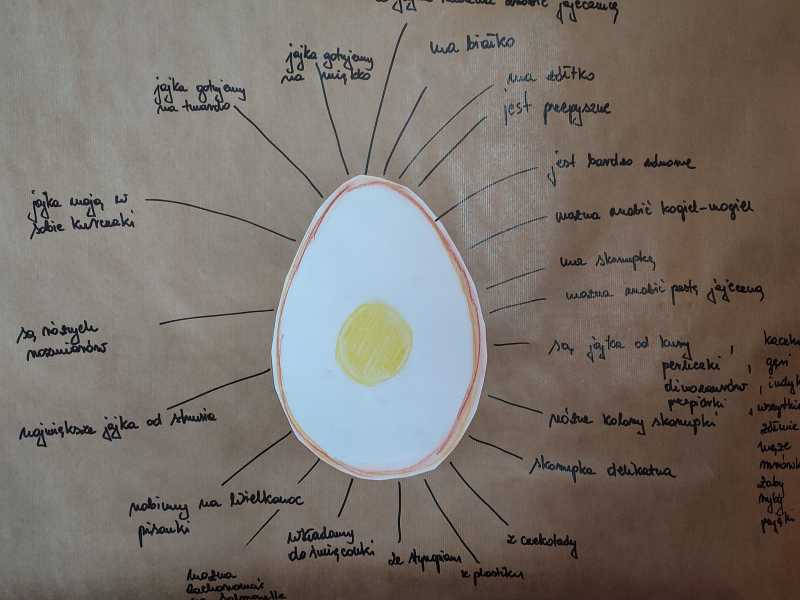 zrobić jajecznicę
ma białko
jajka gotujemy
na miękko
jajka gotujemy
na twardo
ma żółtko
jest przepyszne
jest bardzo zdrowe
jajka mają w
sobie kurczaki
można zrobić kogiel-mogiel
ma skorupkę
można zrobić pastę jajeczną
są różnych
rozmiarów
są jajka od kury,
perliczki,
dinozaurów,
przepiórki,
gęsi
żółwie
węże
mrówki
żaby
ryby
pająki
największe jajka od strusia
różne kolory skorupki
skorupka delikatna
robimy na Wielkanoc
pisanki
wkładamy
do święconki
ze styropianu
z plastiku
z czekolady
można
zachorować